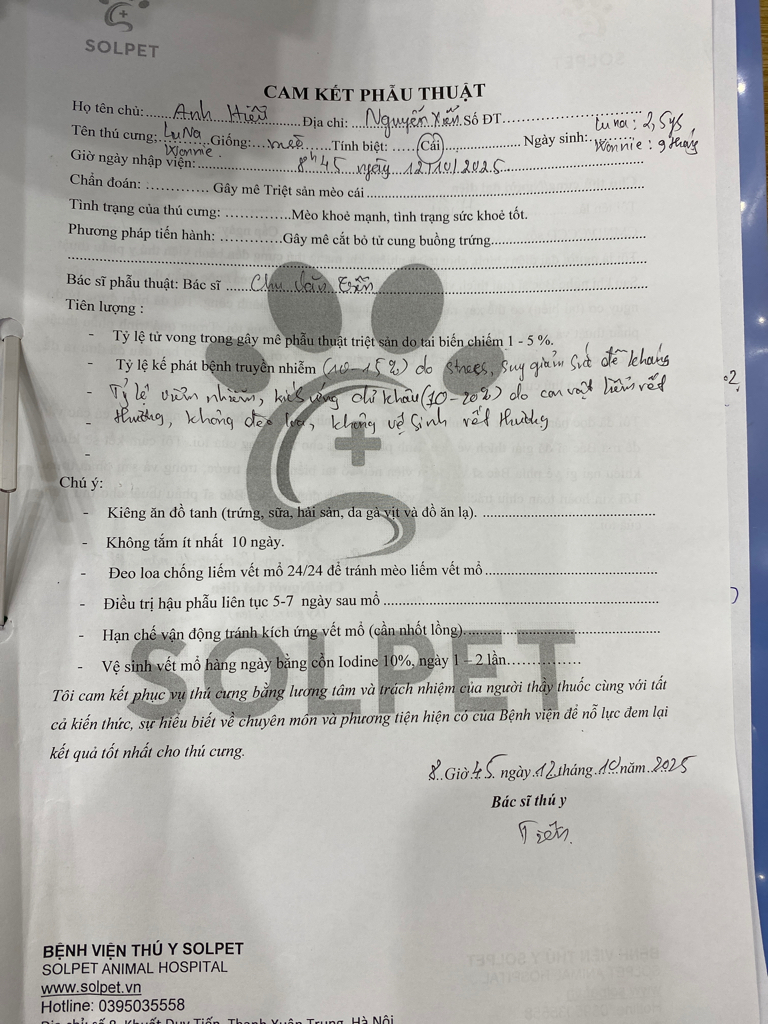 SOLPET
CAM KẾT PHẪU THUẬT
Họ tên chủ: Anh Hiếu Địa chỉ: Nguyễn Xiển Số ĐT
Tên thú cưng: LuNa Giống: mèo Tính biệt: Cái Ngày sinh: Luna: 2,5
Wonnie Wonnie: 9 tháng
Giờ ngày nhập viện: 8h45 ngày 12/10/2025
Chẩn đoán: ............ Gây mê Triệt sản mèo cái
Tình trạng của thú cưng: ............Mèo khoẻ mạnh, tình trạng sức khoẻ tốt.
Phương pháp tiến hành: ............Gây mê cắt bỏ tử cung buồng trứng
Bác sĩ phẫu thuật: Bác sĩ Chu Văn
Tiên lượng :
- Tỷ lệ tử vong trong gây mê phẫu thuật triệt sản do tai biến chiếm 1 - 5 %.
- Tỷ lệ kế phát bệnh truyền nhiễm (10-15%) do stress, suy giảm sức đề kháng
- Tỷ lệ viêm nhiễm, kích ứng chỉ khâu (10-20%) do con vật liếm vết
- thương, không đeo loa, không vệ sinh vết thương
-
Chú ý:
- Kiêng ăn đồ tanh (trứng, sữa, hải sản, da gà vịt và đồ ăn lạ).
- Không tắm ít nhất 10 ngày.
- Đeo loa chống liếm vết mổ 24/24 để tránh mèo liếm vết mổ
- Điều trị hậu phẫu liên tục 5-7 ngày sau mổ
- Hạn chế vận động tránh kích ứng vết mổ (cần nhốt lồng).
- Vệ sinh vết mổ hàng ngày bằng cồn Iodine 10%, ngày 1 – 2 lần
SOLPET
Tôi cam kết phục vụ thú cưng bằng lương tâm và trách nhiệm của người thầy thuốc cùng với tất
cả kiến thức, sự hiểu biết về chuyên môn và phương tiện hiện có của Bệnh viện để nỗ lực đem lại
kết quả tốt nhất cho thú cưng.
8 Giờ 45 ngày 12 tháng 10 năm 2025
Bác sĩ thú y
BỆNH VIỆN THÚ Y SOLPET
SOLPET ANIMAL HOSPITAL
www.solpet.vn
Hotline: 0395035558
Địa chỉ số 8, Khuất Duy Tiến, Thanh Xuân Trung, Hà Nội